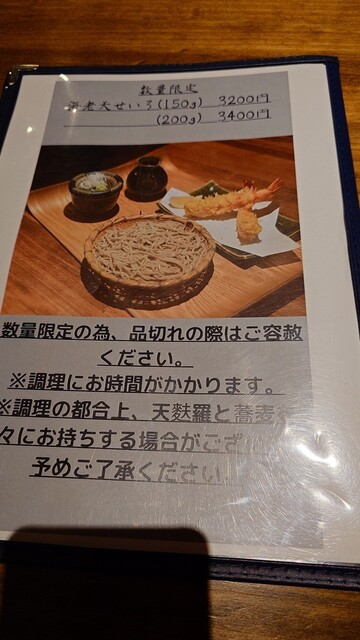 数量限定
海老天せいろ(150g) 3200円
(200g) 3400円
数量限定の為、品切れの際はご容赦
ください。
※調理にお時間がかかります。
※調理の都合上、天麩羅と蕎麦
々にお持ちする場合がござ
予めご了承ください